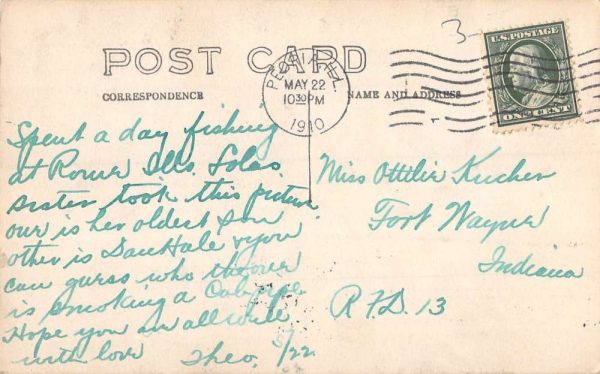 3
U.S. POSTAGE
ONE CENT
POST CARD
PEORIA, ILL.
MAY 22
10 30 PM
1910
CORRESPONDENCE
NAME AND ADDRESS
Spent a day fishing
at Rome Ills. Lolas
sister took this picture
one is her oldest son
other is Dan Hale & you
can guess who the over
is smoking a Cob pipe
Hope you are all well
with love Theo. 5/22
Miss Ottilie Kucher
Fort Wayne
Indiana
R.F.D. 13